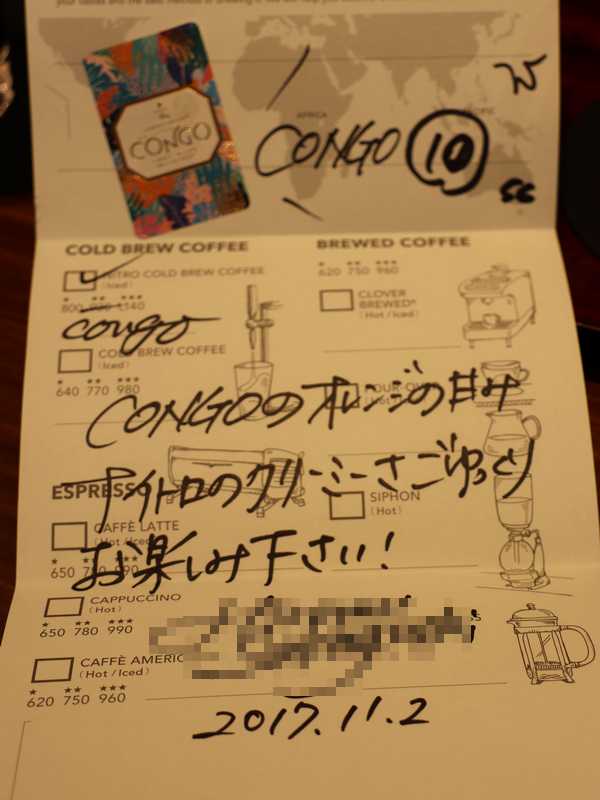 your tastes and the best method of brewing
CONGO
AFRICA
CONGO 10
COLD BREW COFFEE
NITRO COLD BREW COFFEE
(Iced)
★ ★★ ★★★
congo
COLD BREW COFFEE
(Iced)
★ ★★ ★★★
640 770 980
BREWED COFFEE
★ ★★ ★★★
620 750 960
CLOVER
BREWED®
(Hot / Iced)
CONGOのオレンジの甘み
ナイトロのクリーミーさごゆっくり
お楽しみ下さい!
ESPRESSO
SIPHON
(Hot)
CAFFÈ LATTE
(Hot / Iced)
650 780 990
CAPPUCCINO
(Hot)
★ ★★ ★★★
650 780 990
CAFFÈ AMERIC
(Hot / Iced)
★ ★★ ★★★
620 750 960
2017.11.2